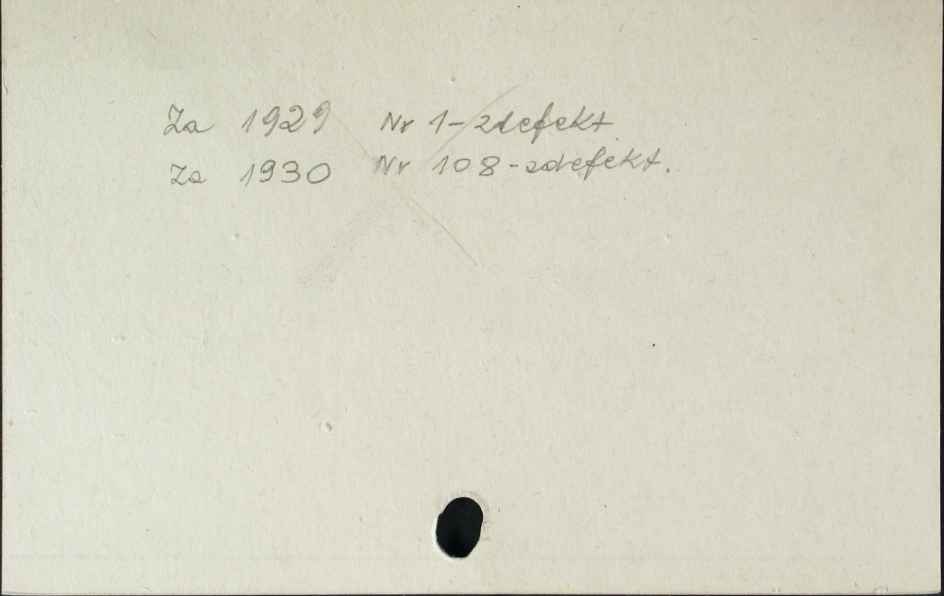 Za 1929 Nr 1-zdefekt
Za 1930 Nr 108-zdefekt.